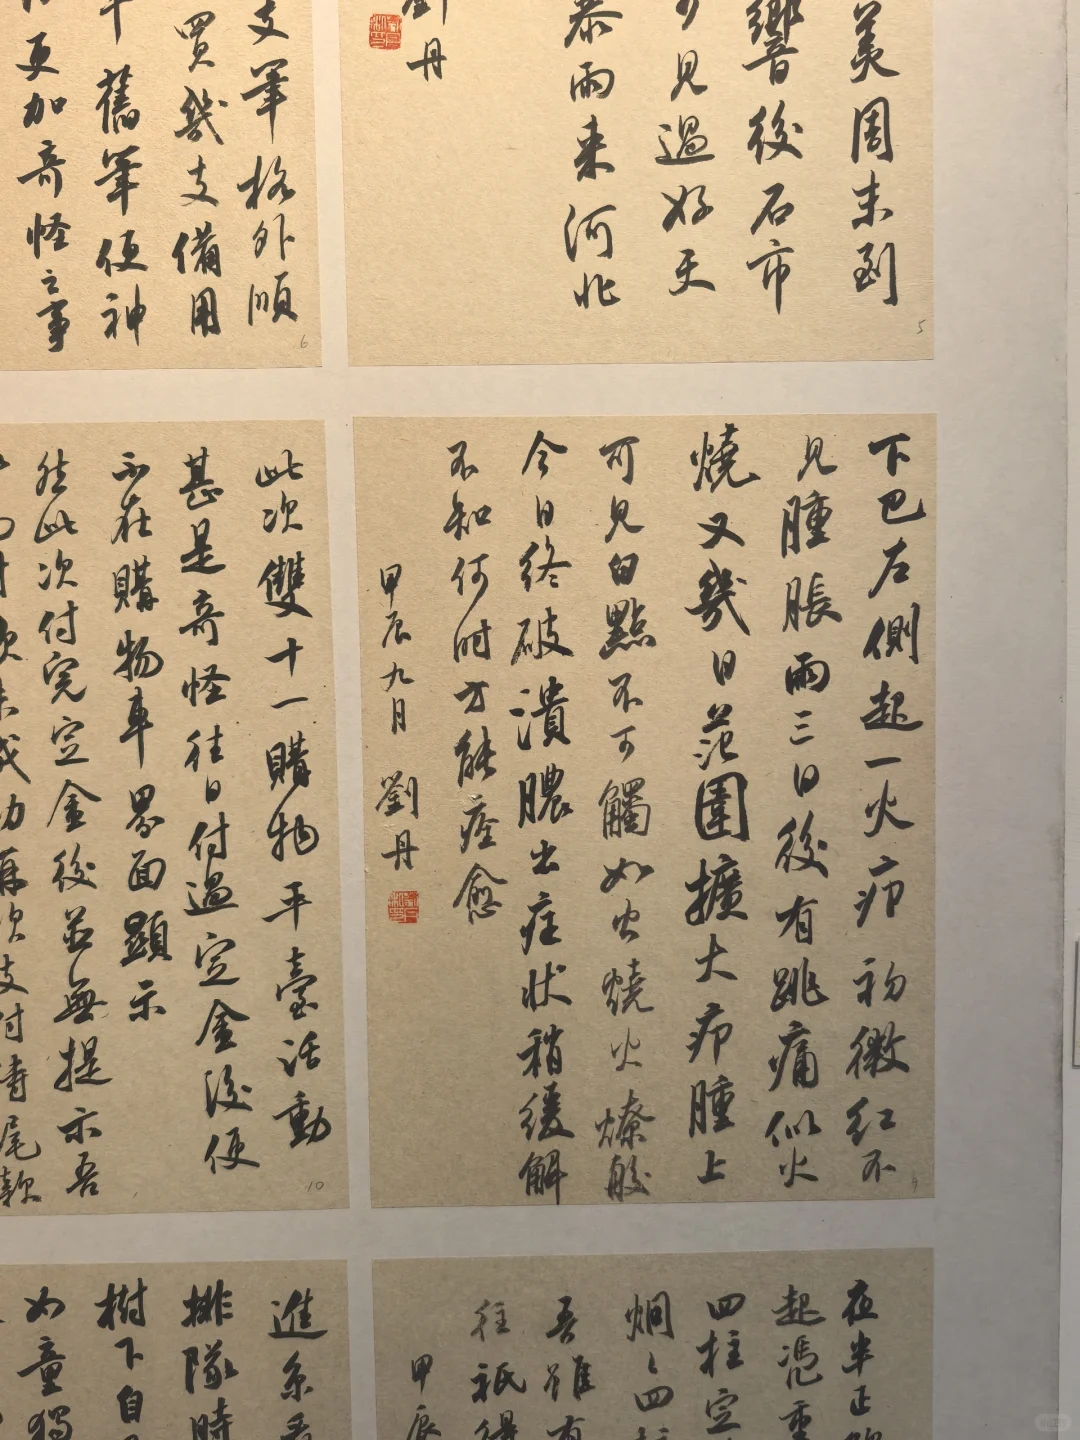 美周末到
響後石市
見過好天
泰雨來河北
劉丹
5
支筆格外順
買幾支備用
舊筆便神
更加奇怪之事
6
下巴左側起一火疖初微紅不
見腫脹兩三日後有跳痛似火
燒又幾日范圍擴大疖腫上
可見白點不可觸如火燒火燎般
今日終破潰膿出症狀稍緩解
不知何时方能痊愈
甲辰九月 劉丹
9
此次雙十一購物平臺活動
甚是奇怪往日付過定金後便
可在購物車界面顯示
然此次付完定金後並無提示吾
未成功再次支付時尾款
10
夜半正
起憑
四柱定
炯々四
吾雖有
往祇得
甲辰
進系
排隊時
樹下自
如童獨